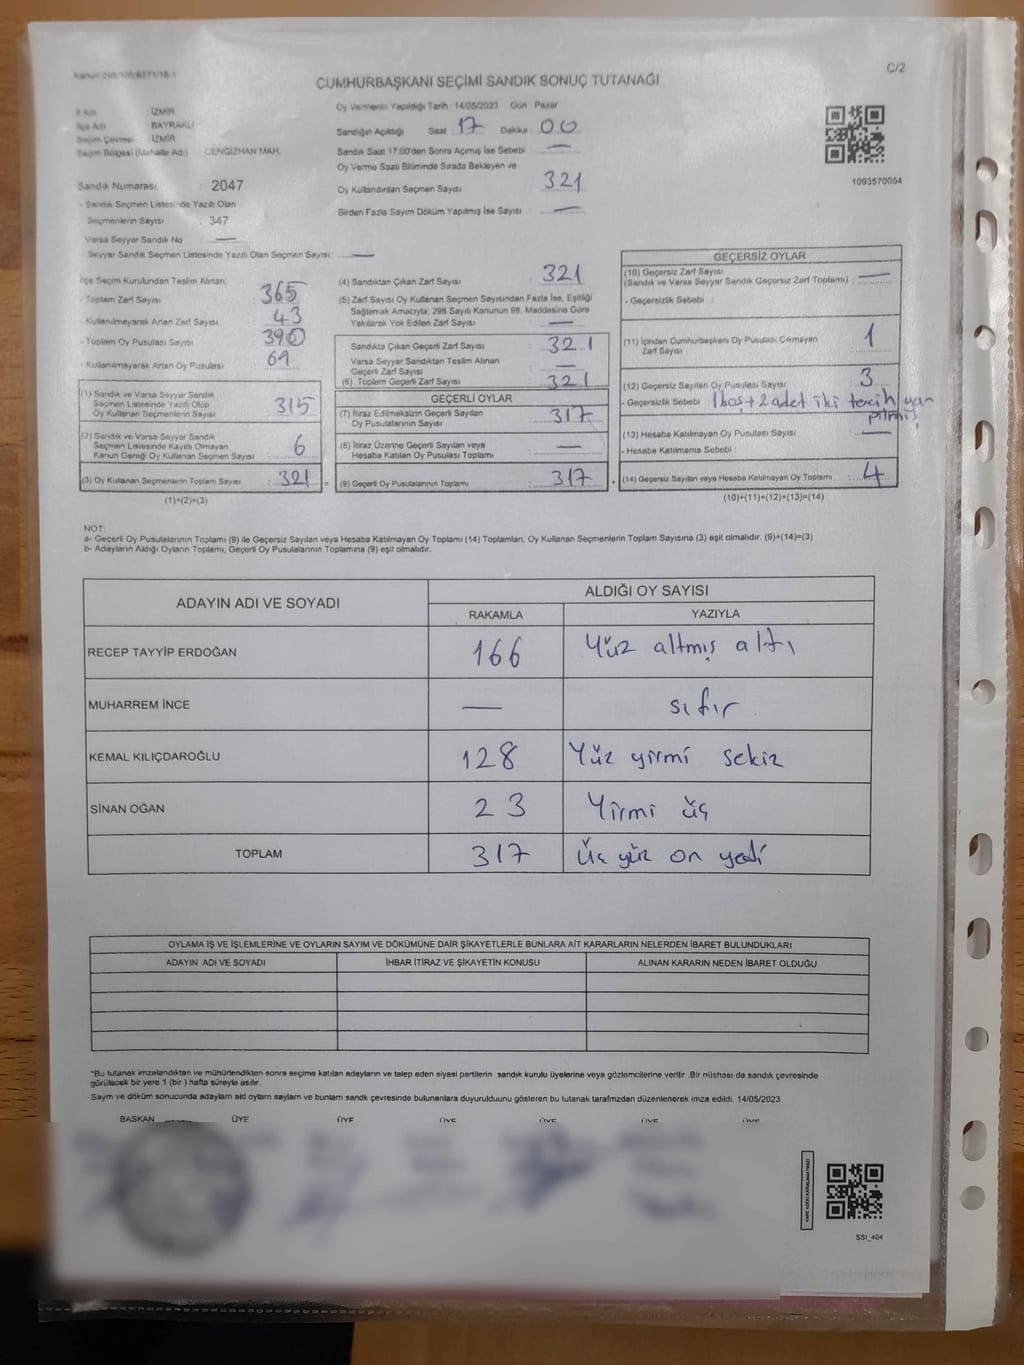 C/2
CUMHURBAŞKANI SEÇİMİ SANDIK SONUÇ TUTANAĞI
İl Adı : İZMİR
İlçe Adı : BAYRAKLI
Seçim Çevresi : İZMİR
Seçim Bölgesi (Mahalle Adı) : CENGİZHAN MAH.
Sandık Numarası : 2047
- Sandık Seçmen Listesinde Yazılı Olan
Seçmenlerin Sayısı : 347
Varsa Seyyar Sandık No : —
- Seyyar Sandık Seçmen Listesinde Yazılı Olan Seçmen Sayısı : —
Oy Vermenin Yapıldığı Tarih : 14/05/2023 Gün : Pazar
Sandığın Açıldığı Saat : 17 Dakika : 00
Sandık Saat 17.00'den Sonra Açılmış İse Sebebi : —
Oy Verme Saati Bitiminde Sırada Bekleyen ve
Oy Kullandırılan Seçmen Sayısı : 321
Birden Fazla Sayım Döküm Yapılmış İse Sayısı : —
1093570054
İlçe Seçim Kurulundan Teslim Alınan;
- Toplam Zarf Sayısı : 365
- Kullanılmayarak Artan Zarf Sayısı : 43
- Toplam Oy Pusulası Sayısı : 390
- Kullanılmayarak Artan Oy Pusulası : 69
(1) Sandık ve Varsa Seyyar Sandık
Seçmen Listesinde Yazılı Olup
Oy Kullanan Seçmenlerin Sayısı : 315
(2) Sandık ve Varsa Seyyar Sandık
Seçmen Listesinde Kayıtlı Olmayan
Kanun Gereği Oy Kullanan Seçmen Sayısı : 6
(3) Oy Kullanan Seçmenlerin Toplam Sayısı : 321
(1)+(2)=(3)
(4) Sandıktan Çıkan Zarf Sayısı : 321
(5) Zarf Sayısı Oy Kullanan Seçmen Sayısından Fazla İse, Eşitliği
Sağlamak Amacıyla; 298 Sayılı Kanunun 98. Maddesine Göre
Yakılarak Yok Edilen Zarf Sayısı : —
Sandıkta Çıkan Geçerli Zarf Sayısı : 321
Varsa Seyyar Sandıktan Teslim Alınan
Geçerli Zarf Sayısı : —
(6) Toplam Geçerli Zarf Sayısı : 321
GEÇERLİ OYLAR
(7) İtiraz Edilmeksizin Geçerli Sayılan
Oy Pusulalarının Sayısı : 317
(8) İtiraz Üzerine Geçerli Sayılan veya
Hesaba Katılan Oy Pusulası Toplamı : —
(9) Geçerli Oy Pusulalarının Toplamı : 317
GEÇERSİZ OYLAR
(10) Geçersiz Zarf Sayısı
(Sandık ve Varsa Seyyar Sandık Geçersiz Zarf Toplamı) : —
- Geçersizlik Sebebi :
(11) İçinden Cumhurbaşkanı Oy Pusulası Çıkmayan
Zarf Sayısı : 1
(12) Geçersiz Sayılan Oy Pusulası Sayısı : 3
- Geçersizlik Sebebi : 1 boş + 2 adet iki tercih
(13) Hesaba Katılmayan Oy Pusulası Sayısı : —
- Hesaba Katılmama Sebebi :
(14) Geçersiz Sayılan veya Hesaba Katılmayan Oy Toplamı : 4
(10)+(11)+(12)+(13)=(14)
NOT:
a- Geçerli Oy Pusulalarının Toplamı (9) ile Geçersiz Sayılan veya Hesaba Katılmayan Oy Toplamı (14) Toplamları, Oy Kullanan Seçmenlerin Toplam Sayısına (3) eşit olmalıdır. (9)+(14)=(3)
b- Adayların Aldığı Oyların Toplamı, Geçerli Oy Pusulalarının Toplamına (9) eşit olmalıdır.
ADAYIN ADI VE SOYADI
ALDIĞI OY SAYISI
RAKAMLA YAZIYLA
RECEP TAYYİP ERDOĞAN 166 Yüz altmış altı
MUHARREM İNCE — sıfır
KEMAL KILIÇDAROĞLU 128 Yüz yirmi sekiz
SİNAN OĞAN 23 Yirmi üç
TOPLAM 317 Üç yüz on yedi
OYLAMA İŞ VE İŞLEMLERİNE VE OYLARIN SAYIM VE DÖKÜMÜNE DAİR ŞİKAYETLERLE BUNLARA AİT KARARLARIN NELERDEN İBARET BULUNDUKLARI
ADAYIN ADI VE SOYADI İHBAR İTİRAZ VE ŞİKAYETİN KONUSU ALINAN KARARIN NEDEN İBARET OLDUĞU
*Bu tutanak imzalandıktan ve mühürlendikten sonra seçime katılan adayların ve talep eden siyasi partilerin sandık kurulu üyelerine veya gözlemcilerine verilir .Bir nüshası da sandık çevresinde
görülecek bir yere 1 (bir ) hafta süreyle asılır.
Sayım ve döküm sonucunda adayların aldığı oyların sayıları ve bunların sandık çevresinde bulunanlara duyurulduğunu gösteren bu tutanak tarafımızdan düzenlenerek imza edildi. 14/05/2023
BAŞKAN ÜYE ÜYE ÜYE ÜYE ÜYE ÜYE
SSİ_404